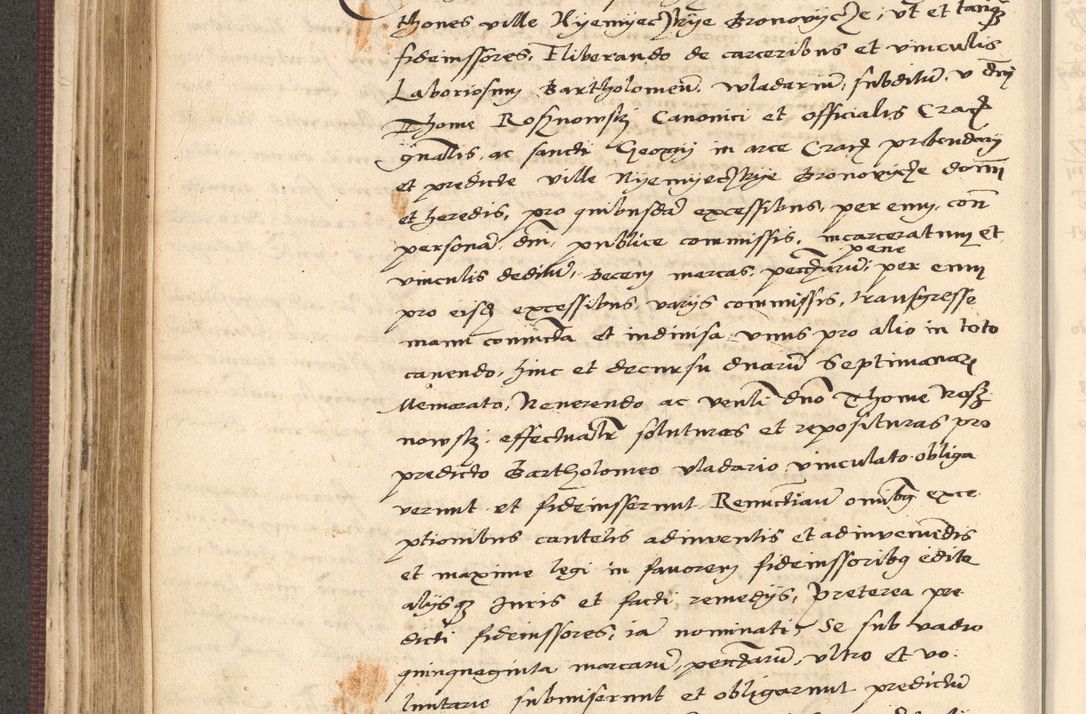 thones ville Nyemyeczkye Bronovycze, ut et tanq
fideiussores, Eliberando de carceribus et vinculis
Laboriosum Bartholomeū, vladarium, subditū, v dni
Thome Roschnowsky Canonici et officialis Crac
gnalis, ac sancti Georgij in arce Crac prebendarij
et predicte ville Nyemyeczkye Bronovycze domi
et heredis, pro quibusdā excessibus, per eum, con
personā, dni, publice commissis, incarceratum et
vinculis deditū, Decem marcas, pecūiariū, pene per eum
pro eisd excessibus, varijs commissis, transgresse
manu coniūcta et indiuisa, unus pro alio in toto
cauendo, hinc et decursu duarū Septimanarū
Memorato, Reuerendo ac venli dno Thome Rosch
nowsky, effectualr soluturos et reposituros pro
predicto Bartholomeo vladario vinculato obliga
verunt et fideiusserunt Renuctiaū omibq exce
ptionibus cautelis adinuentis et adinueniēdis
et maxime legi in fauorem fideiussoribq edite
alijsq Iuris et facti remedijs, Preterea pre
dicti fideiussores, iā nominati, Se sub vadio
quinquaginta marcarū, pecūiarū, ultro et vo
luntarie submiserunt et obligarunt predictū